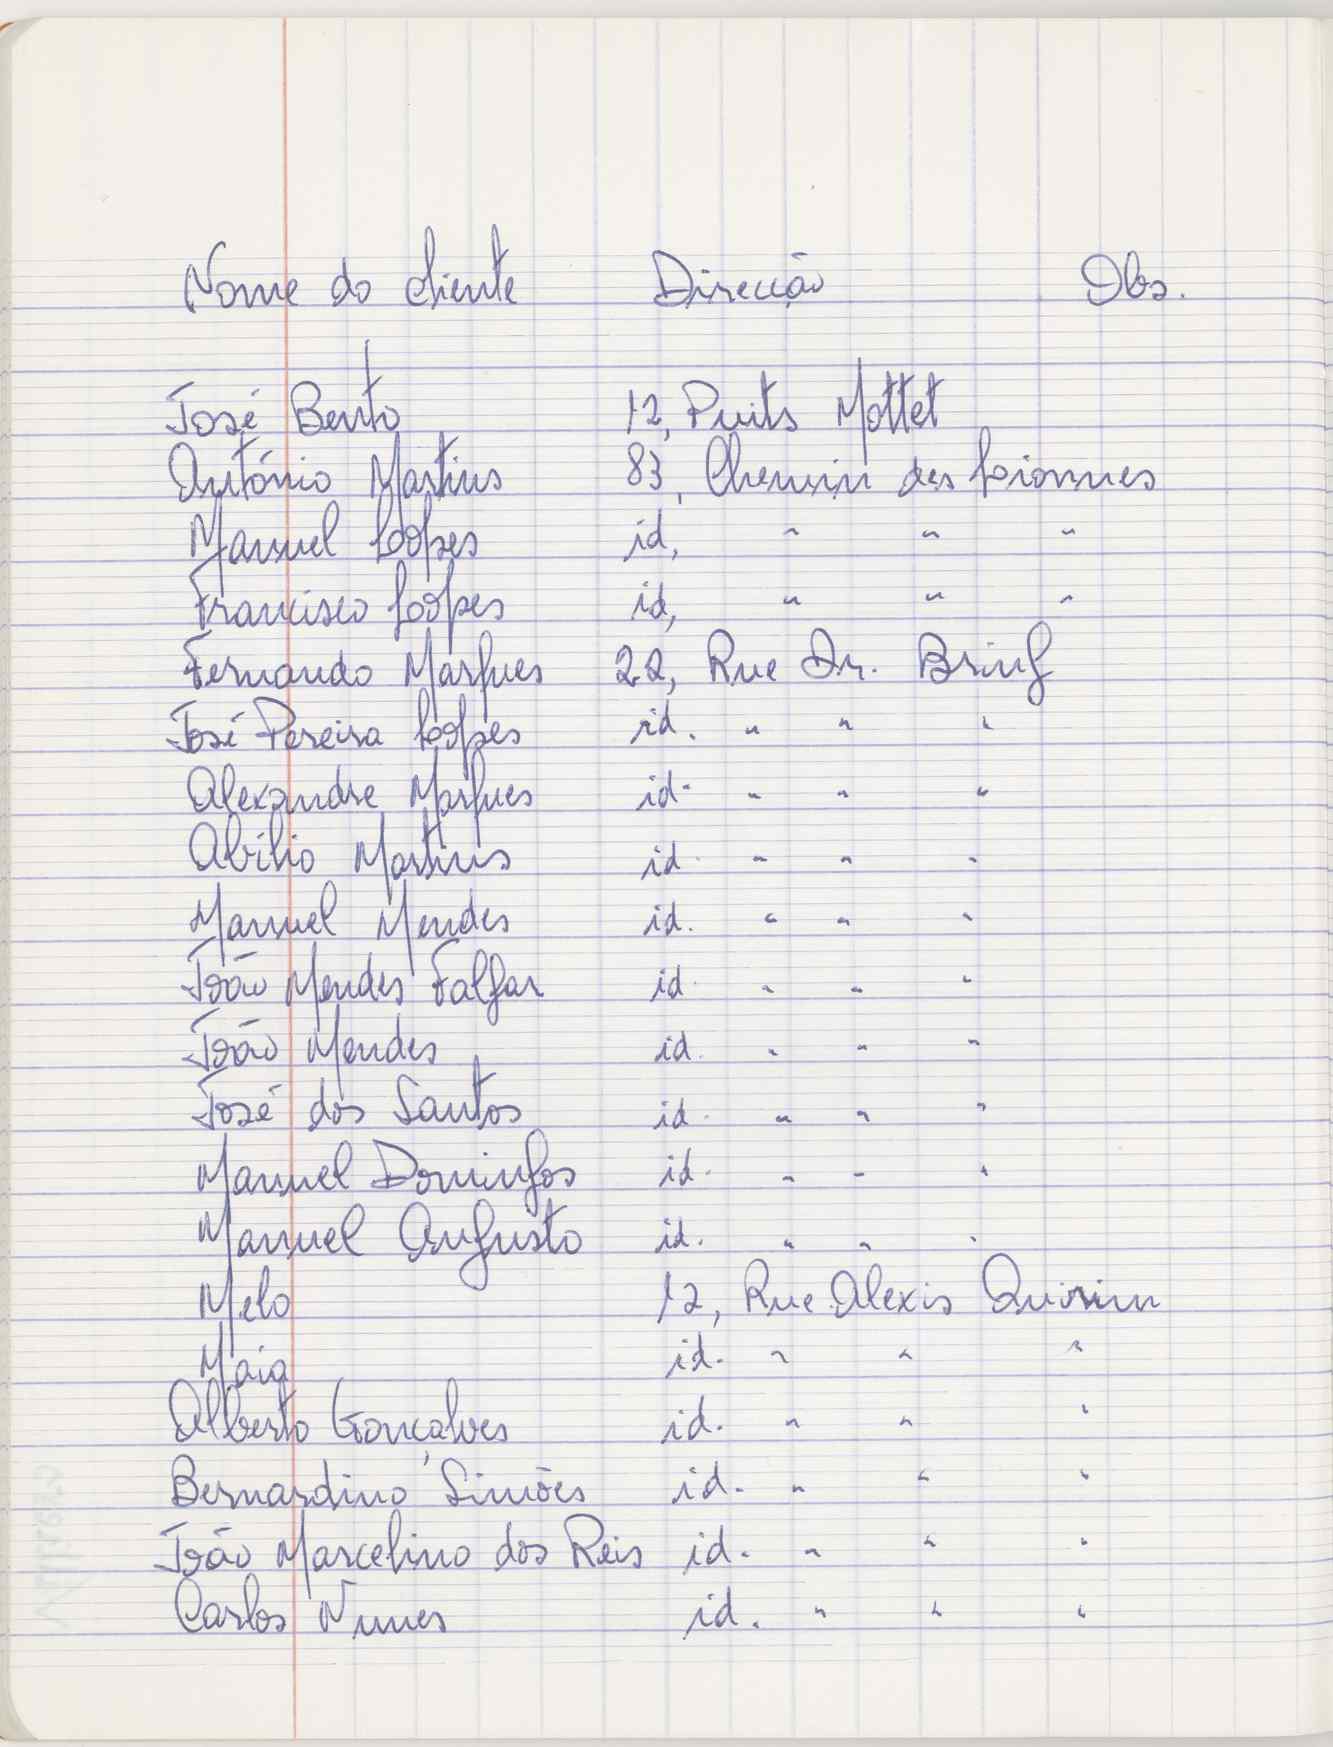 Nome do cliente Direcção Obs.
José Bento 12, Puits Mottet
António Martins 83, Chemin des Lionnes
Manuel Lopes id, " " "
Francisco Lopes id, " " "
Fernando Marques 22, Rue Dr. Bring
José Pereira Lopes id. " " "
Alexandre Marques id. " " "
Abílio Martins id. " " "
Manuel Mendes id. " " "
João Mendes Falgar id. " " "
João Mendes id. " " "
José dos Santos id. " " "
Manuel Domingos id. " " "
Manuel Augusto id. " " "
Melo 12, Rue Alexis Quirin
Maia id. " " "
Alberto Gonçalves id. " " "
Bernardino Simões id. " " "
João Marcelino dos Reis id. " " "
Carlos Nunes id. " " "